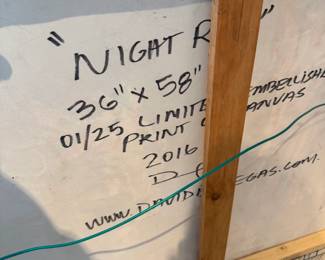 "NIGHT R "
36" x 58"
01/25 LIMITE EMBELLISHE
PRINT CANVAS
2016
D
www.DAVID EGAS.com